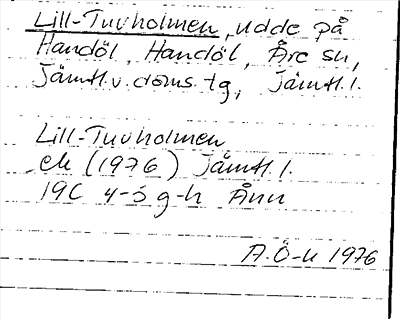 Lill-Tuvholmen, udde på
Handöl, Handöl, Åre sn,
Jämtl.v.doms.tg, Jämtl.l.
Lill-Tuvholmen
ek (1976) Jämtl.l.
19C 4-5 g-h Ånn
A.Ö-n 1976